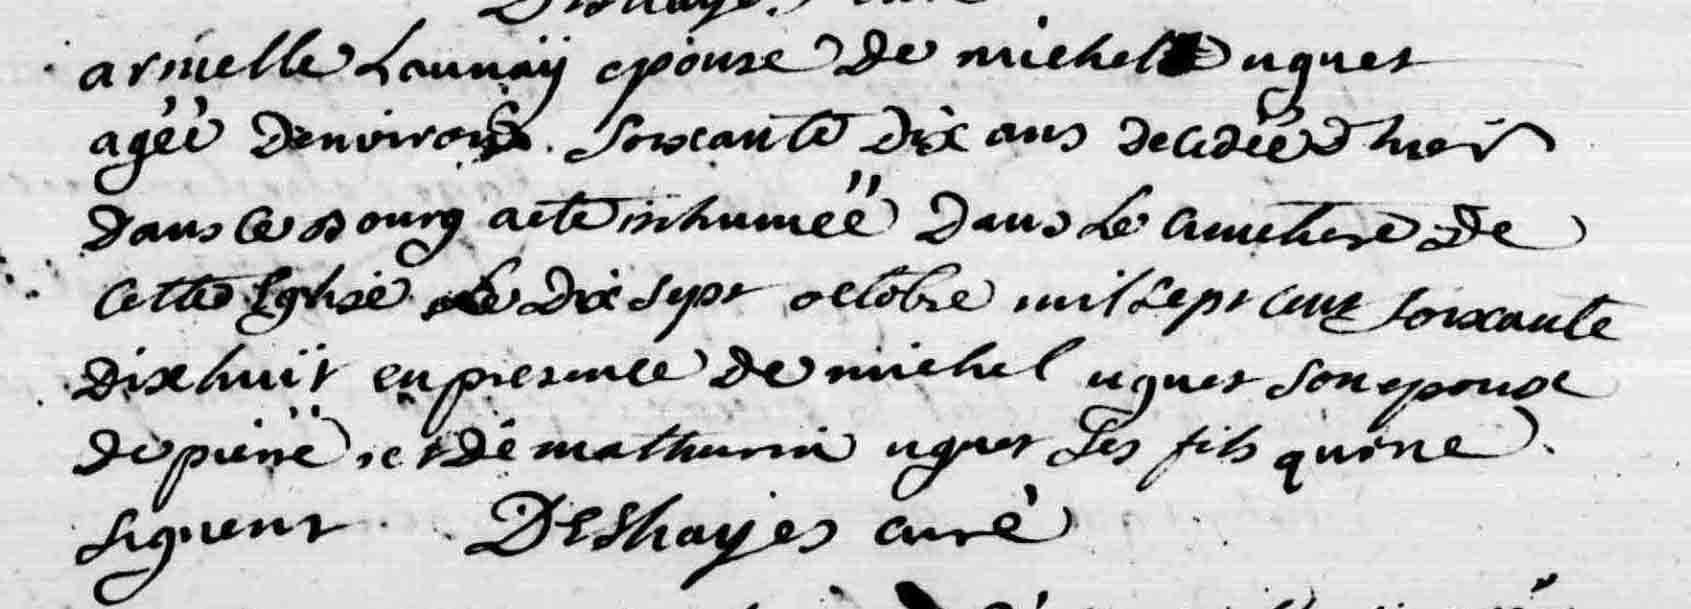 armelle Launaÿ epouse de michel uguet
agéé denviron soixante dix ans decedéé d hier
dans ce bourg a ete inhumeé dans Le cimetiere de
cette Eglise Le dix sept octobre mil sept cent soixante
dix huit en presence de michel uguet son epouse
de pierre et de mathurin uguet ses fils qui ne
signent Deshayes curé